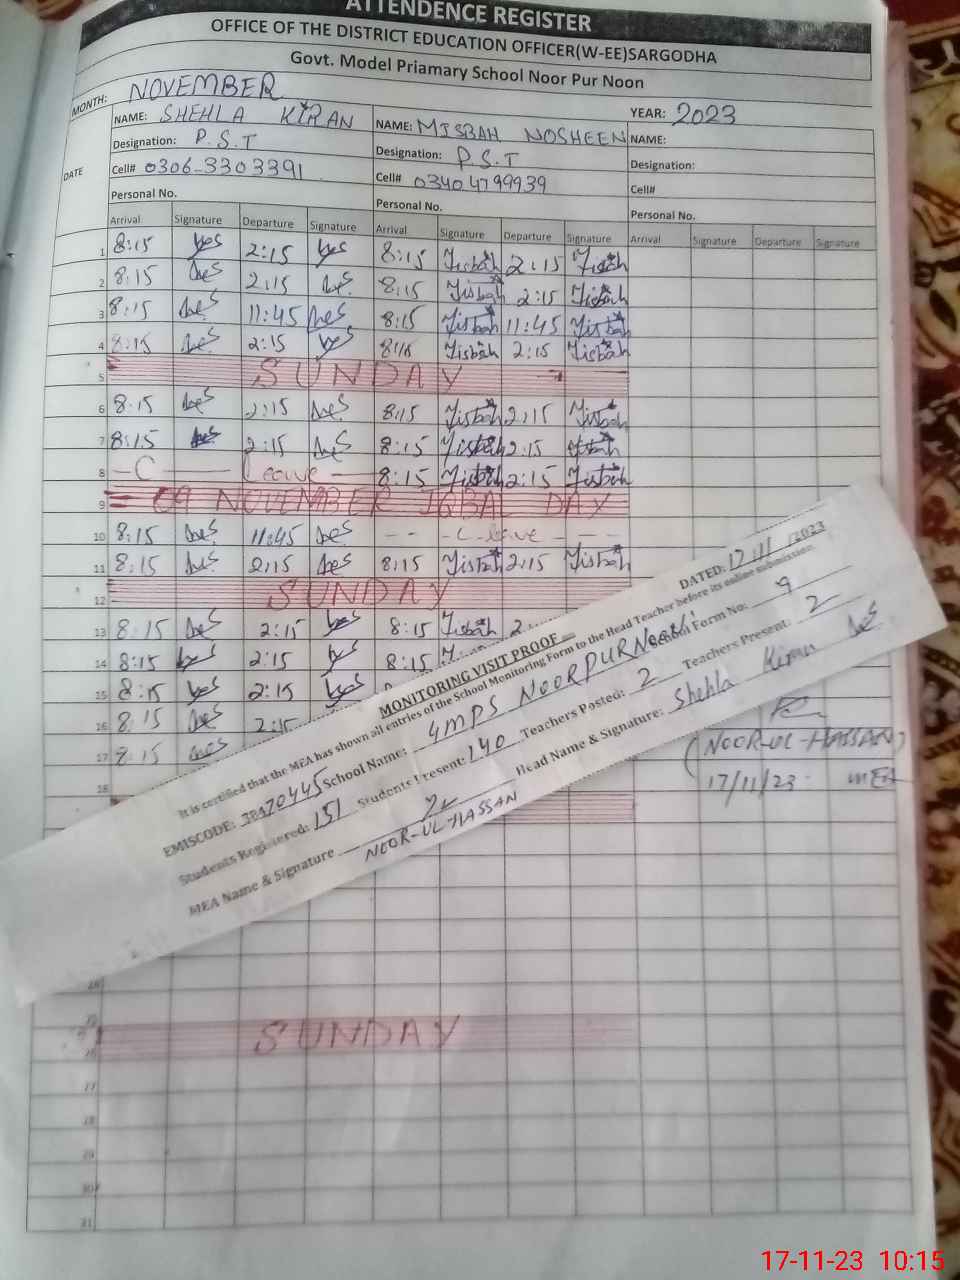 ATTENDENCE REGISTER
OFFICE OF THE DISTRICT EDUCATION OFFICER(W-EE)SARGODHA
Govt. Model Priamary School Noor Pur Noon
MONTH: NOVEMBER YEAR: 2023
NAME: SHEHLA KIRAN NAME: MISBAH NOSHEEN NAME:
Designation: P.S.T Designation: P.S.T Designation:
DATE Cell# 0306-3303391 Cell# 03404799939 Cell#
Personal No. Personal No. Personal No.
Arrival Signature Departure Signature Arrival Signature Departure Signature Arrival Signature Departure Signature
1 8:15 2:15 8:15 2:15
2 8:15 2:15 8:15 2:15
3 8:15 11:45 8:15 11:45
4 8:15 2:15 2:15
5 SUNDAY
6 8:15 2:15 8:15 2:15
7 8:15 2:15 8:15 2:15
8 -C Leave 8:15 2:15
9 09 NOVEMBER IQBAL DAY
10 8:15 11:45 - - - C-leave - - -
11 8:15 2:15 8:15 2:15
12 SUNDAY
13 8:15 2:15 8:15 2
14 8:15 2:15 8:15
15 8:15 2:15
16 8:15 2:15
17 8:15
18
MONITORING VISIT PROOF DATED: 17/11/2023
It is certified that the MEA has shown all entries of the School Monitoring Form to the Head Teacher before its online submission.
EMISCODE: 38470445 School Name: GMPS NOORPURNOON School Form No: 9
Students Registered: 151 Students Present: 140 Teachers Posted: 2 Teachers Present: 2
MEA Name & Signature NOOR-UL-HASSAN Head Name & Signature: Shehla Kiran
(NOOR-UL-HASSAN)
17/11/23 MEA
SUNDAY
27
28
29
30
31
17-11-23 10:15